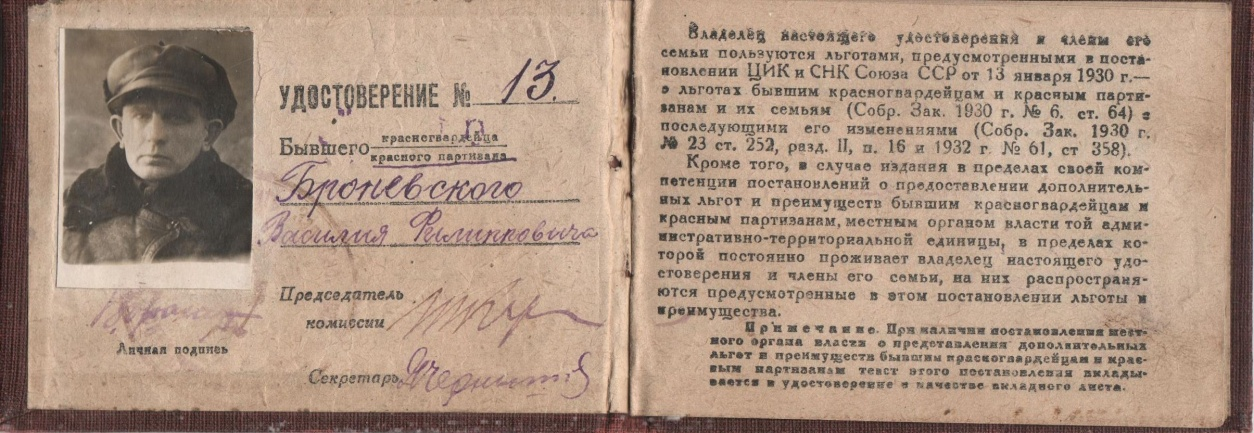 УДОСТОВЕРЕНИЕ № 13.
Бывшего красногвардейца
красного партизана
Броневского
Василия Филипповича
Председатель
комиссии
Личная подпись
Секретарь
Владелец настоящего удостоверения и члены его
семьи пользуются льготами, предусмотренными в поста-
новлении ЦИК и СНК Союза ССР от 13 января 1930 г.—
о льготах бывшим красногвардейцам и красным парти-
занам и их семьям (Собр. Зак. 1930 г. № 6. ст. 64) с
последующими его изменениями (Собр. Зак. 1930 г.
№ 23 ст. 252, разд. II, п. 16 и 1932 г. № 61, ст 358).
Кроме того, в случае издания в пределах своей ком-
петенции постановлений о предоставлении дополнитель-
ных льгот и преимуществ бывшим красногвардейцам и
красным партизанам, местным органом власти той адми-
нистративно-территориальной единицы, в пределах ко-
торой постоянно проживает владелец настоящего удо-
стоверения и члены его семьи, на них распространя-
ются предусмотренные в этом постановлении льготы и
преимущества.
Примечание. При наличии постановления мест-
ного органа власти о представления дополнительных
льгот и преимуществ бывшим красногвардейцам и крас-
ным партизанам текст этого постановления вклады-
вается в удостоверение в качестве вкладного листа.